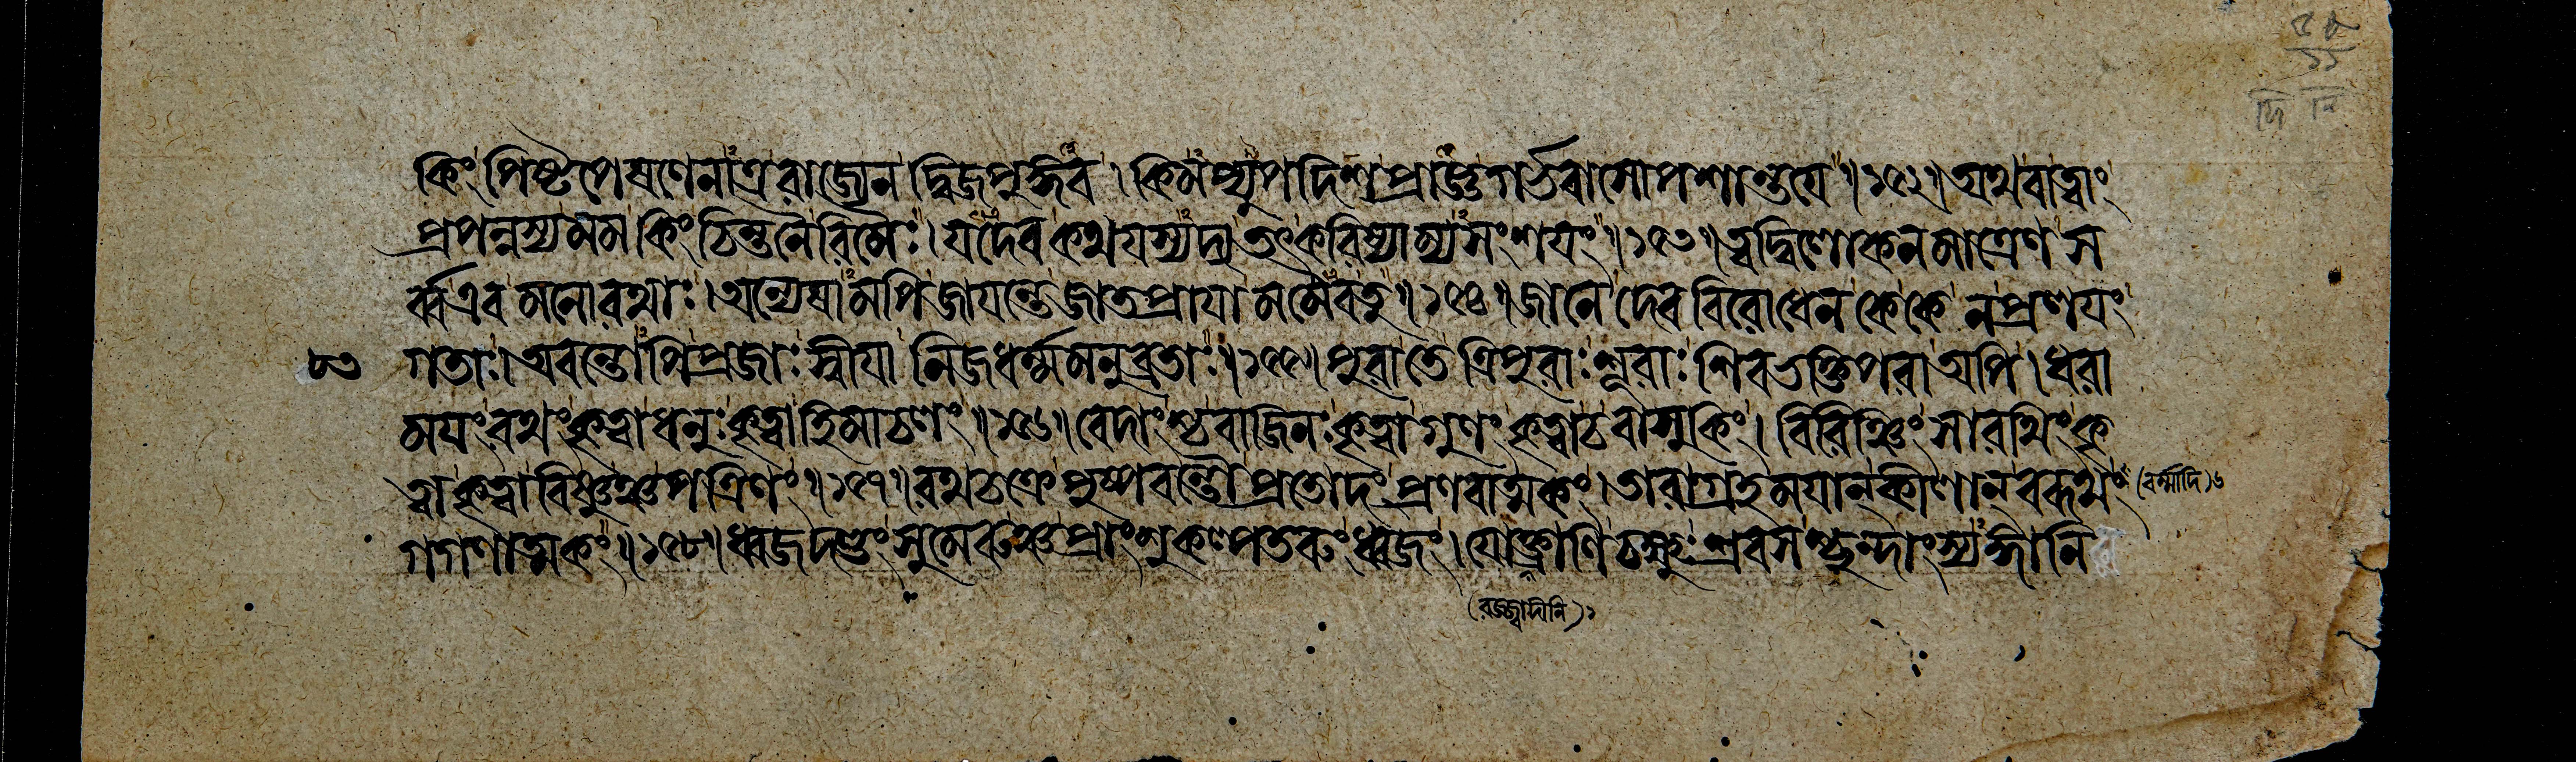 কিং পিষ্টপেষণেনাত্র রাজ্যেন দ্বিজপুঙ্গব । কিমপ্যুপদিশ প্রাজ্ঞ গর্ভবাসোপশান্তযে ॥ ১৫২ ॥ অথবা ত্বাং
প্রপন্নস্য মম কিং চিন্তনৈরিমৈঃ । যদেব কথযস্যদ্য তৎ করিষ্যাম্যসংশযং ॥ ১৫৩ ॥ ত্বদ্বিলোকনমাত্রেণ স
র্ব্ব এব মনোরথাঃ । অন্যেষামপি জাযন্তে জাতপ্রাযা মমৈব তু ॥ ১৫৪ ॥ জানে দেববিরোধেন কে কে ন প্রলযং
৮৩ গতাঃ । অবন্তোপি প্রজাঃ স্বীযা নিজধর্ম্মমনুব্রতাঃ ॥ ১৫৫ ॥ পুরা তে ত্রিপুরাঃ শূরাঃ শিবভক্তিপরা অপি । ধরা
মযং রথং কৃত্বা ধনুঃ কৃত্বা হিমাচলং ॥ ১৫৬ ॥ বেদাংশ্চ বাজিনঃ কৃত্বা গুণং কৃত্বা চ বাসুকিং । বিরিঞ্চিং সারথিং কৃ
ত্বা কৃত্বা বিষ্ণুঞ্চ পত্রিণং ॥ ১৫৭ ॥ রথচক্রে পুষ্পবন্তৌ প্রতোদং প্রণবাত্মকং । তারাগ্রহমযান্ কীলান্ বরূথং (বর্ম্মাদি)৬
গগণাত্মকং ॥ ১৫৮ ॥ ধ্বজদণ্ডং সুমেরুঞ্চ প্রাংশুকল্পতরুং ধ্বজং । যোক্ত্রাণি চক্ষুঃশ্রবসশ্ছন্দাংস্যঙ্গানি
(রজ্জ্বাদীনি)১